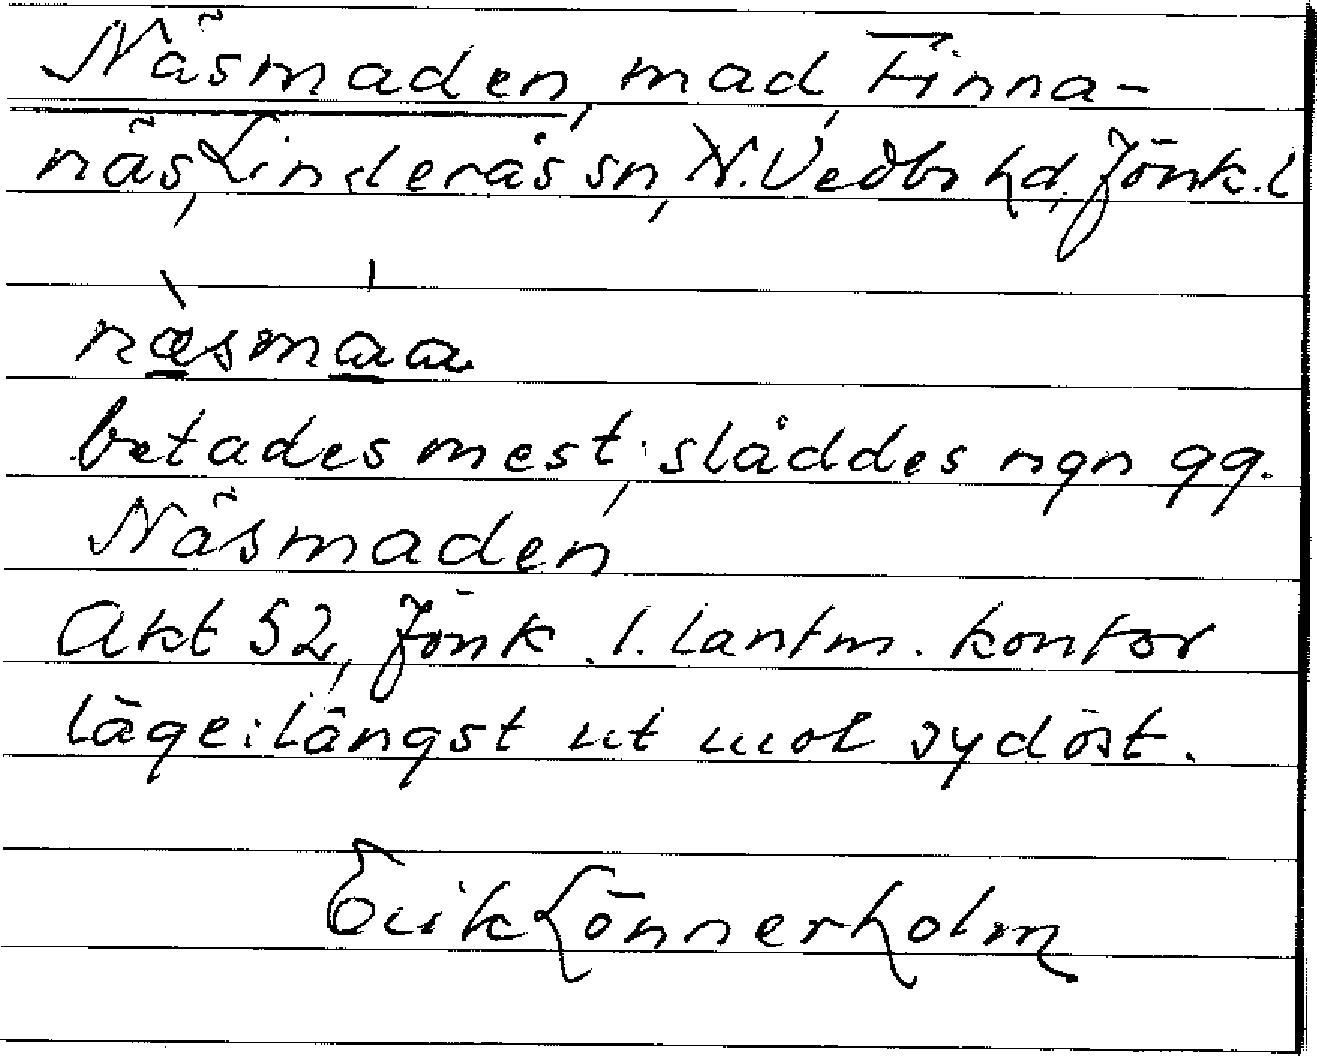 Näsmaden, mad, Finna-
näs, Linderås sn, N. Vedbo hd, Jönk. l
næ̀smáa
betades mest; slåddes ngn gg.
Näsmaden
Akt 52, Jönk. l. lantm. kontor
läge: längst ut mot sydöst.
Erik Lönnerholm